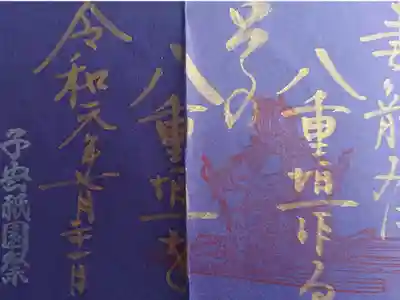 みに
八重垣作る
その
八重垣を
令和元年七月二十一日
祇園祭